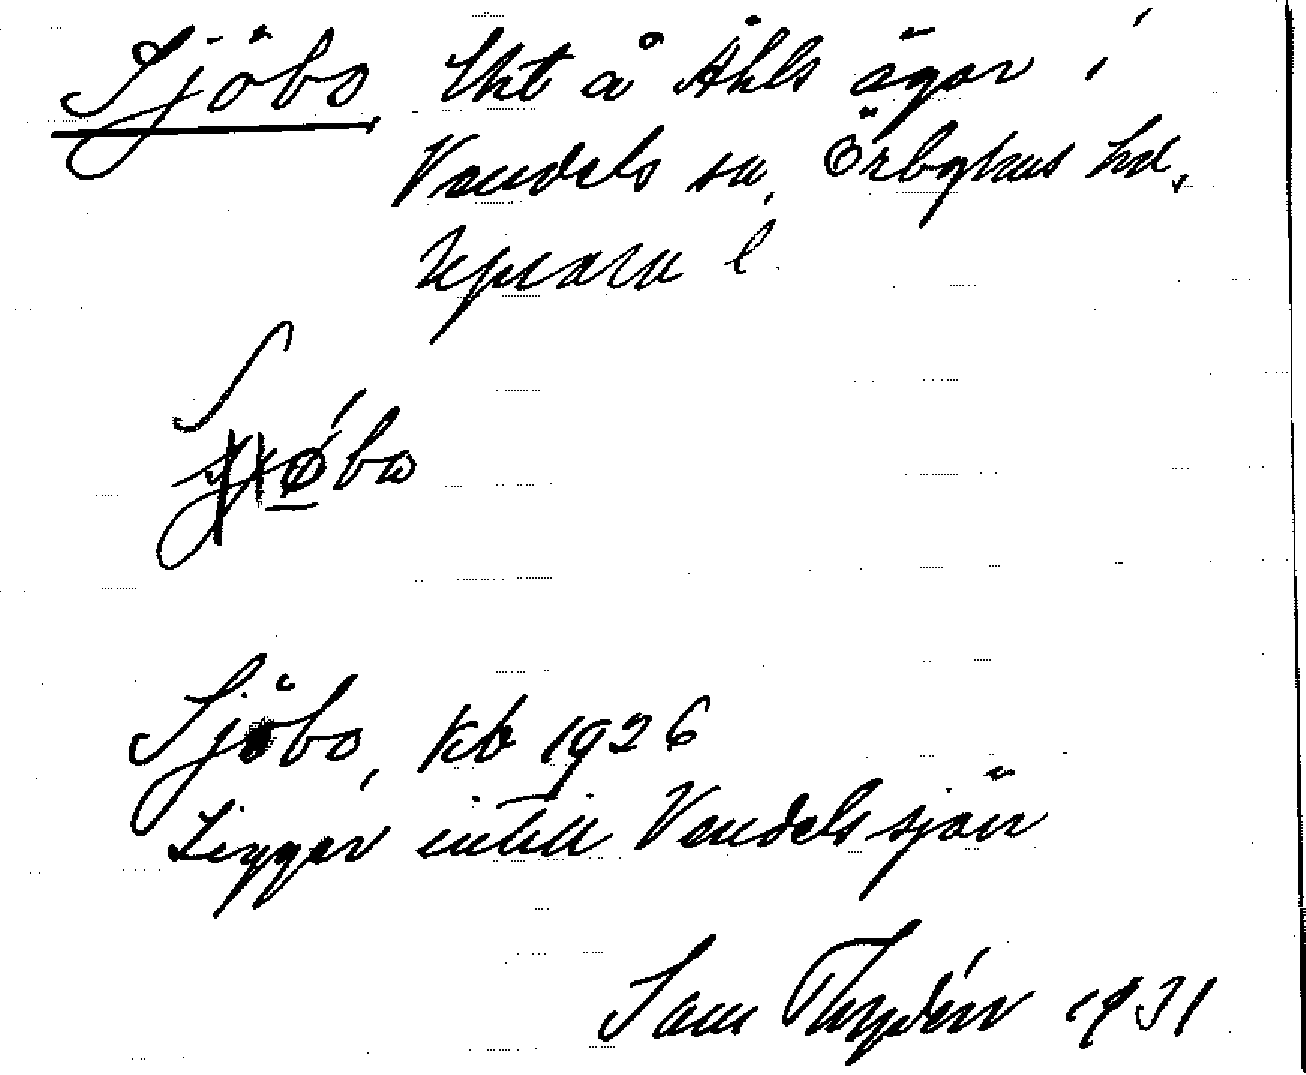 Sjöbo lht å Åhls ägor i
Vendels sn, Örbyhus hd,
Uppsala l.
bo
Sjöbo, kb 1926
Ligger intill Vendelssjön
Sam Thydén 1931